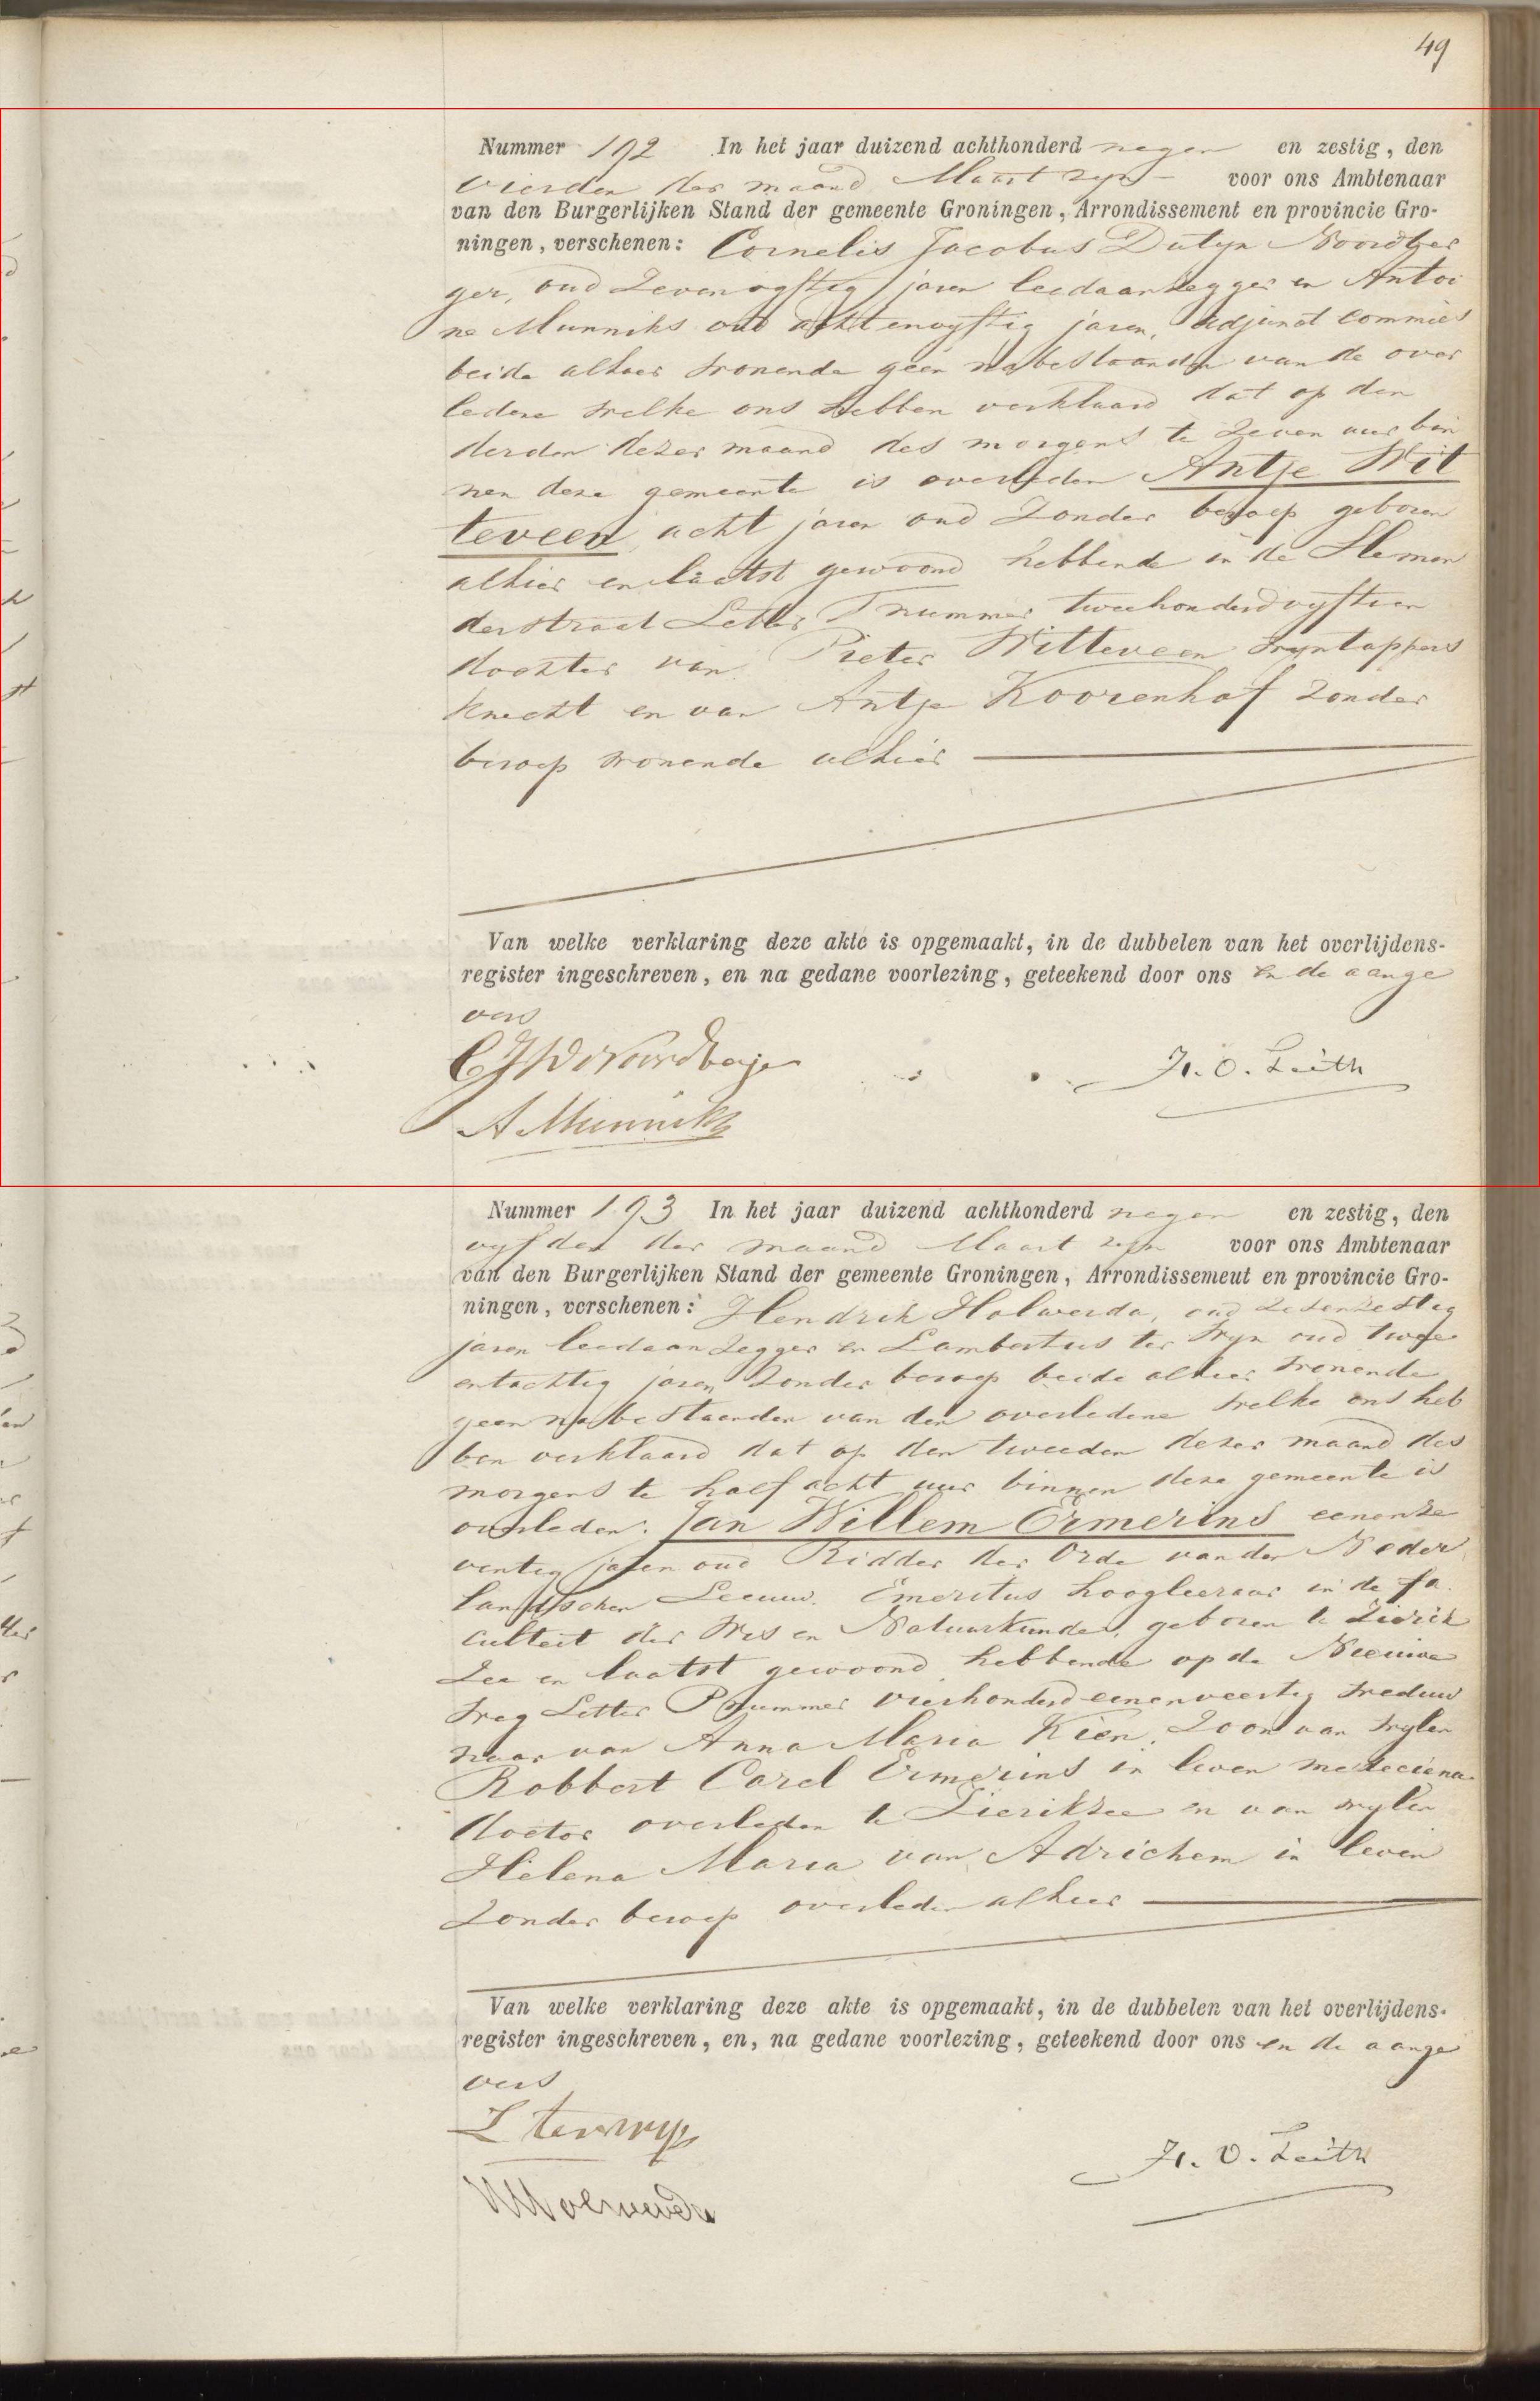 49
Nummer 192 In het jaar duizend achthonderd negen en zestig, den
vierden der maand Maart zyn voor ons Ambtenaar
van den Burgerlijken Stand der gemeente Groningen, Arrondissement en provincie Gro-
ningen, verschenen: Cornelis Jacobus Dutyn Noordber
ger, oud Zevenvyftig jaren leedaanzegger en Antoi
ne Munniks oud achtenvyftig jaren, adjunct commies
beide alhier wonende geen nabestaanden van de over
ledene welke ons hebben verklaard dat op den
derden dezer maand des morgens te Zeven uur bin
nen deze gemeente is overleden Antje Wit
teveen, acht jaren oud Zonder beroep geboren
alhier en laatst gewoond hebbende in de
derstraat Letter T nummer tweehonderdvyftien
dochter van Pieter Witteveen wyntappers
knecht en van Antje Koorenhof Zonder
beroep wonende alhier
Van welke verklaring deze akte is opgemaakt, in de dubbelen van het overlijdens-
register ingeschreven, en na gedane voorlezing, geteekend door ons en de aange
vers
CJD Noordberger
H. O. Feith
A Munniks
Nummer 193 In het jaar duizend achthonderd negen en zestig, den
vyfden der maand Maart zyn voor ons Ambtenaar
van den Burgerlijken Stand der gemeente Groningen, Arrondissement en provincie Gro-
ningen, verschenen: Hendrik Holwerda, oud Zesenzestig
jaren leedaanzegger en Lambertus ter Wyn oud twee
entachtig jaren Zonder beroep beide alhier wonende
geen nabestaanden van den overledene welke ons heb
ben verklaard dat op den tweeden dezer maand des
morgens te half acht uur binnen deze gemeente is
overleden: Jan Willem Ermerins eenenze
ventig jaren oud Ridder der Orde van den Neder
landschen Leeuw. Emeritus hoogleeraar in de fa
culteit der Wis en Natuurkunde, geboren te Zierik
Zee en laatst gewoond hebbende op de Nieuwe
weg Letter P nummer vierhonderd eenenveertig weduw
naar van Anna Maria Kien, Zoon van wylen
Robbert Carel Ermerins in leven medeciena
doctor overleden te Zierikzee en van wylen
Helena Maria van Adrichem in leven
Zonder beroep overleden alhier
Van welke verklaring deze akte is opgemaakt, in de dubbelen van het overlijdens-
register ingeschreven, en, na gedane voorlezing, geteekend door ons en de aange
vers
L ter Wyn
H. O. Feith
H Holwerda